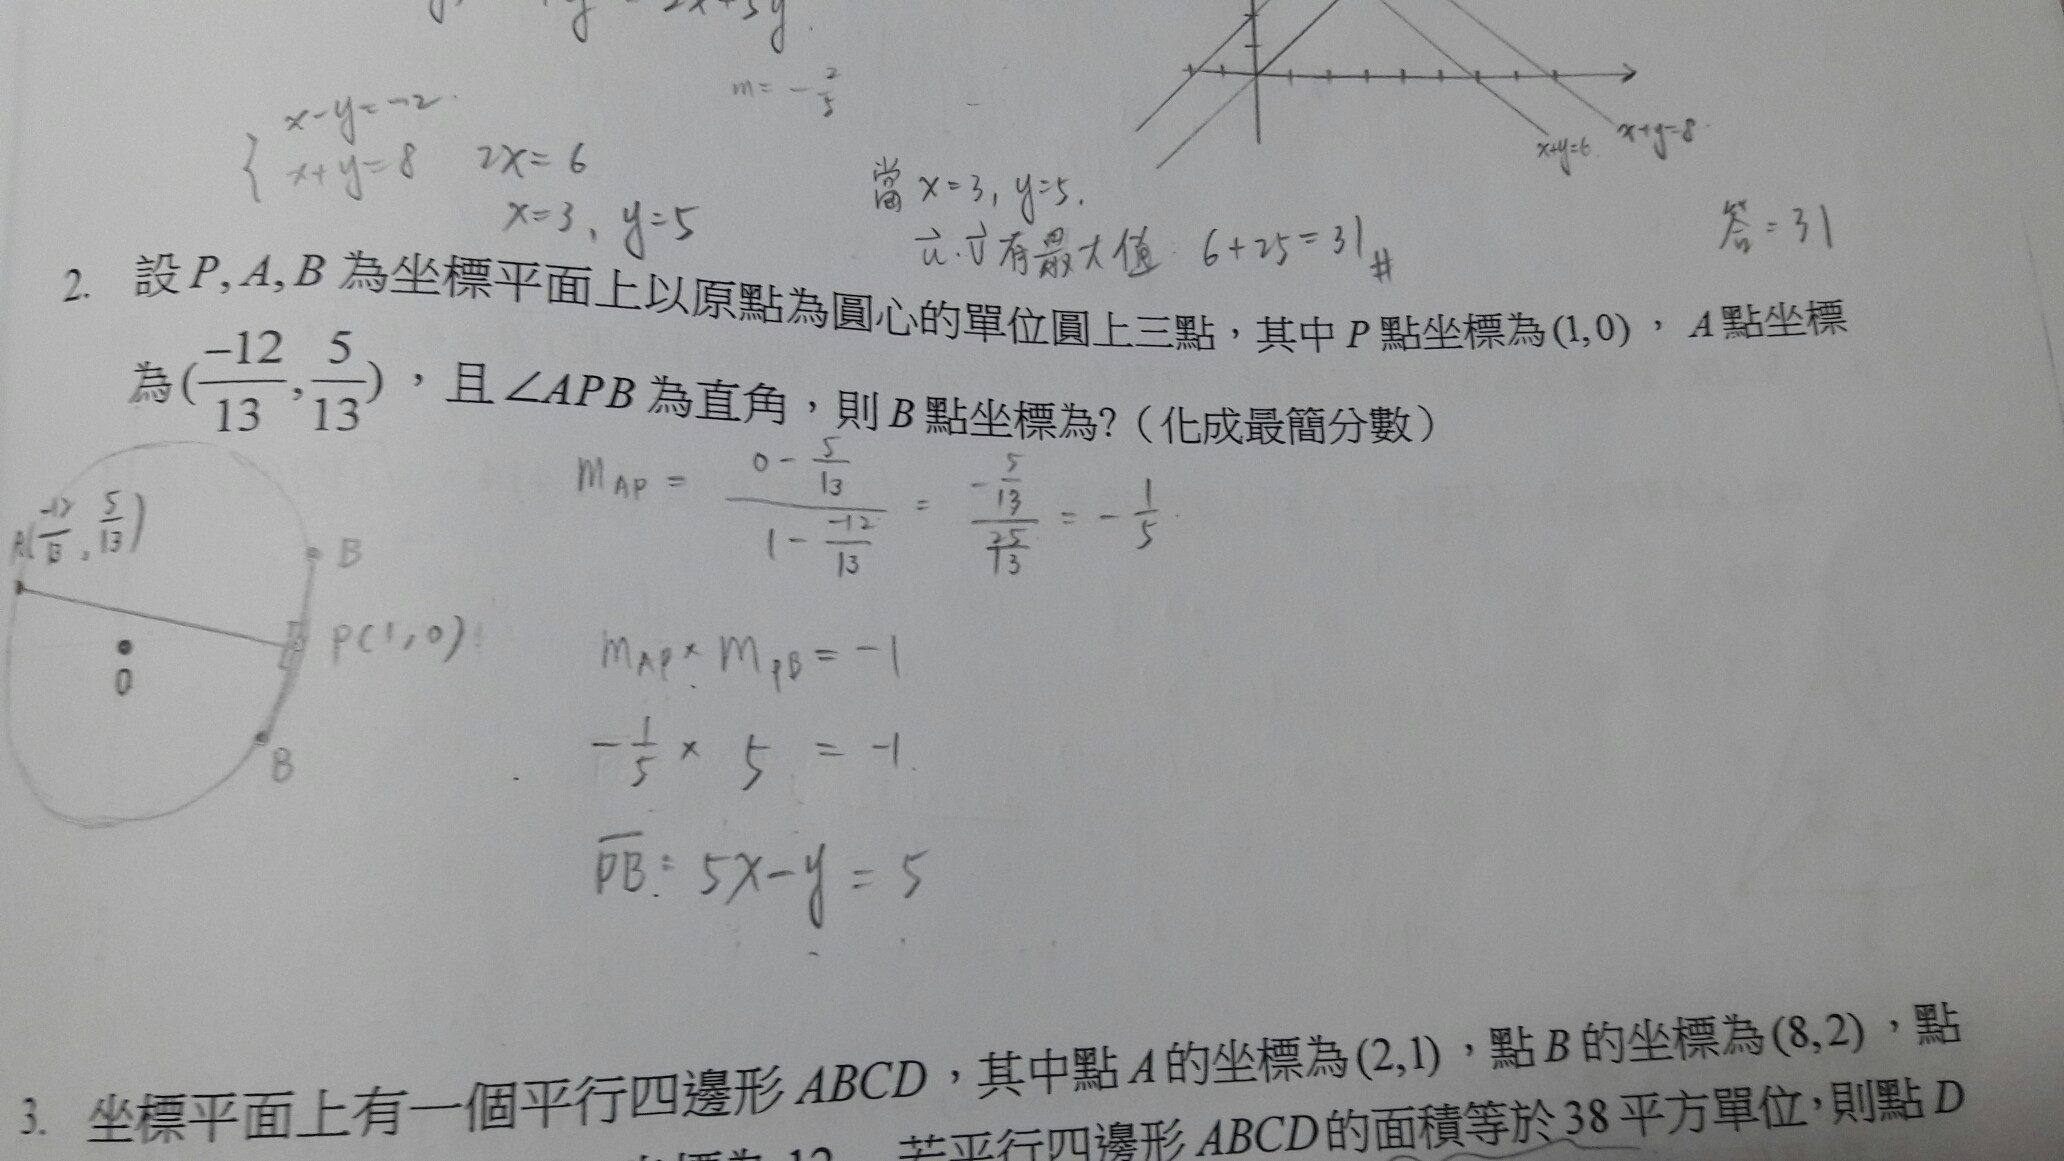 2x+5y.
x-y=-2.
x+y=8 2x=6
x=3, y=5
m= -2/5
x+y=6. x+y=8.
當 x=3, y=5.
u⃗·v⃗ 有最大值: 6+25=31#
答=31
2. 設 P, A, B 為坐標平面上以原點為圓心的單位圓上三點，其中 P 點坐標為(1,0)， A 點坐標
為(-12/13, 5/13)，且∠APB 為直角，則 B 點坐標為?（化成最簡分數）
A(-12/13, 5/13)
B
P(1,0)
O
B
m_AP = (0 - 5/13)/(1 - -12/13) = (-5/13)/(25/13) = -1/5.
m_AP × m_PB = -1
-1/5 × 5 = -1.
PB: 5x-y = 5
3. 坐標平面上有一個平行四邊形 ABCD，其中點 A 的坐標為(2,1)，點 B 的坐標為(8,2)，點
12 若平行四邊形 ABCD 的面積等於 38 平方單位，則點 D